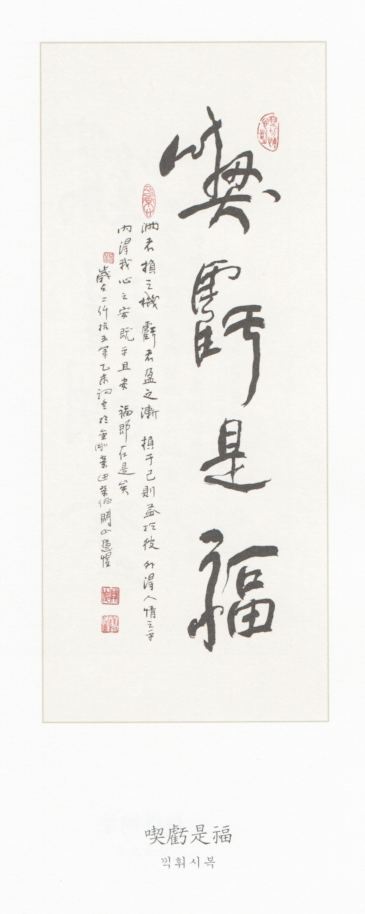 喫虧是福
滿者損之機 虧者盈之漸 損于己則益於彼 外得人情之平
內得我心之安 既平且安 福即在是矣
歲在二仟拾五年乙未
喫虧是福
끽휘시복